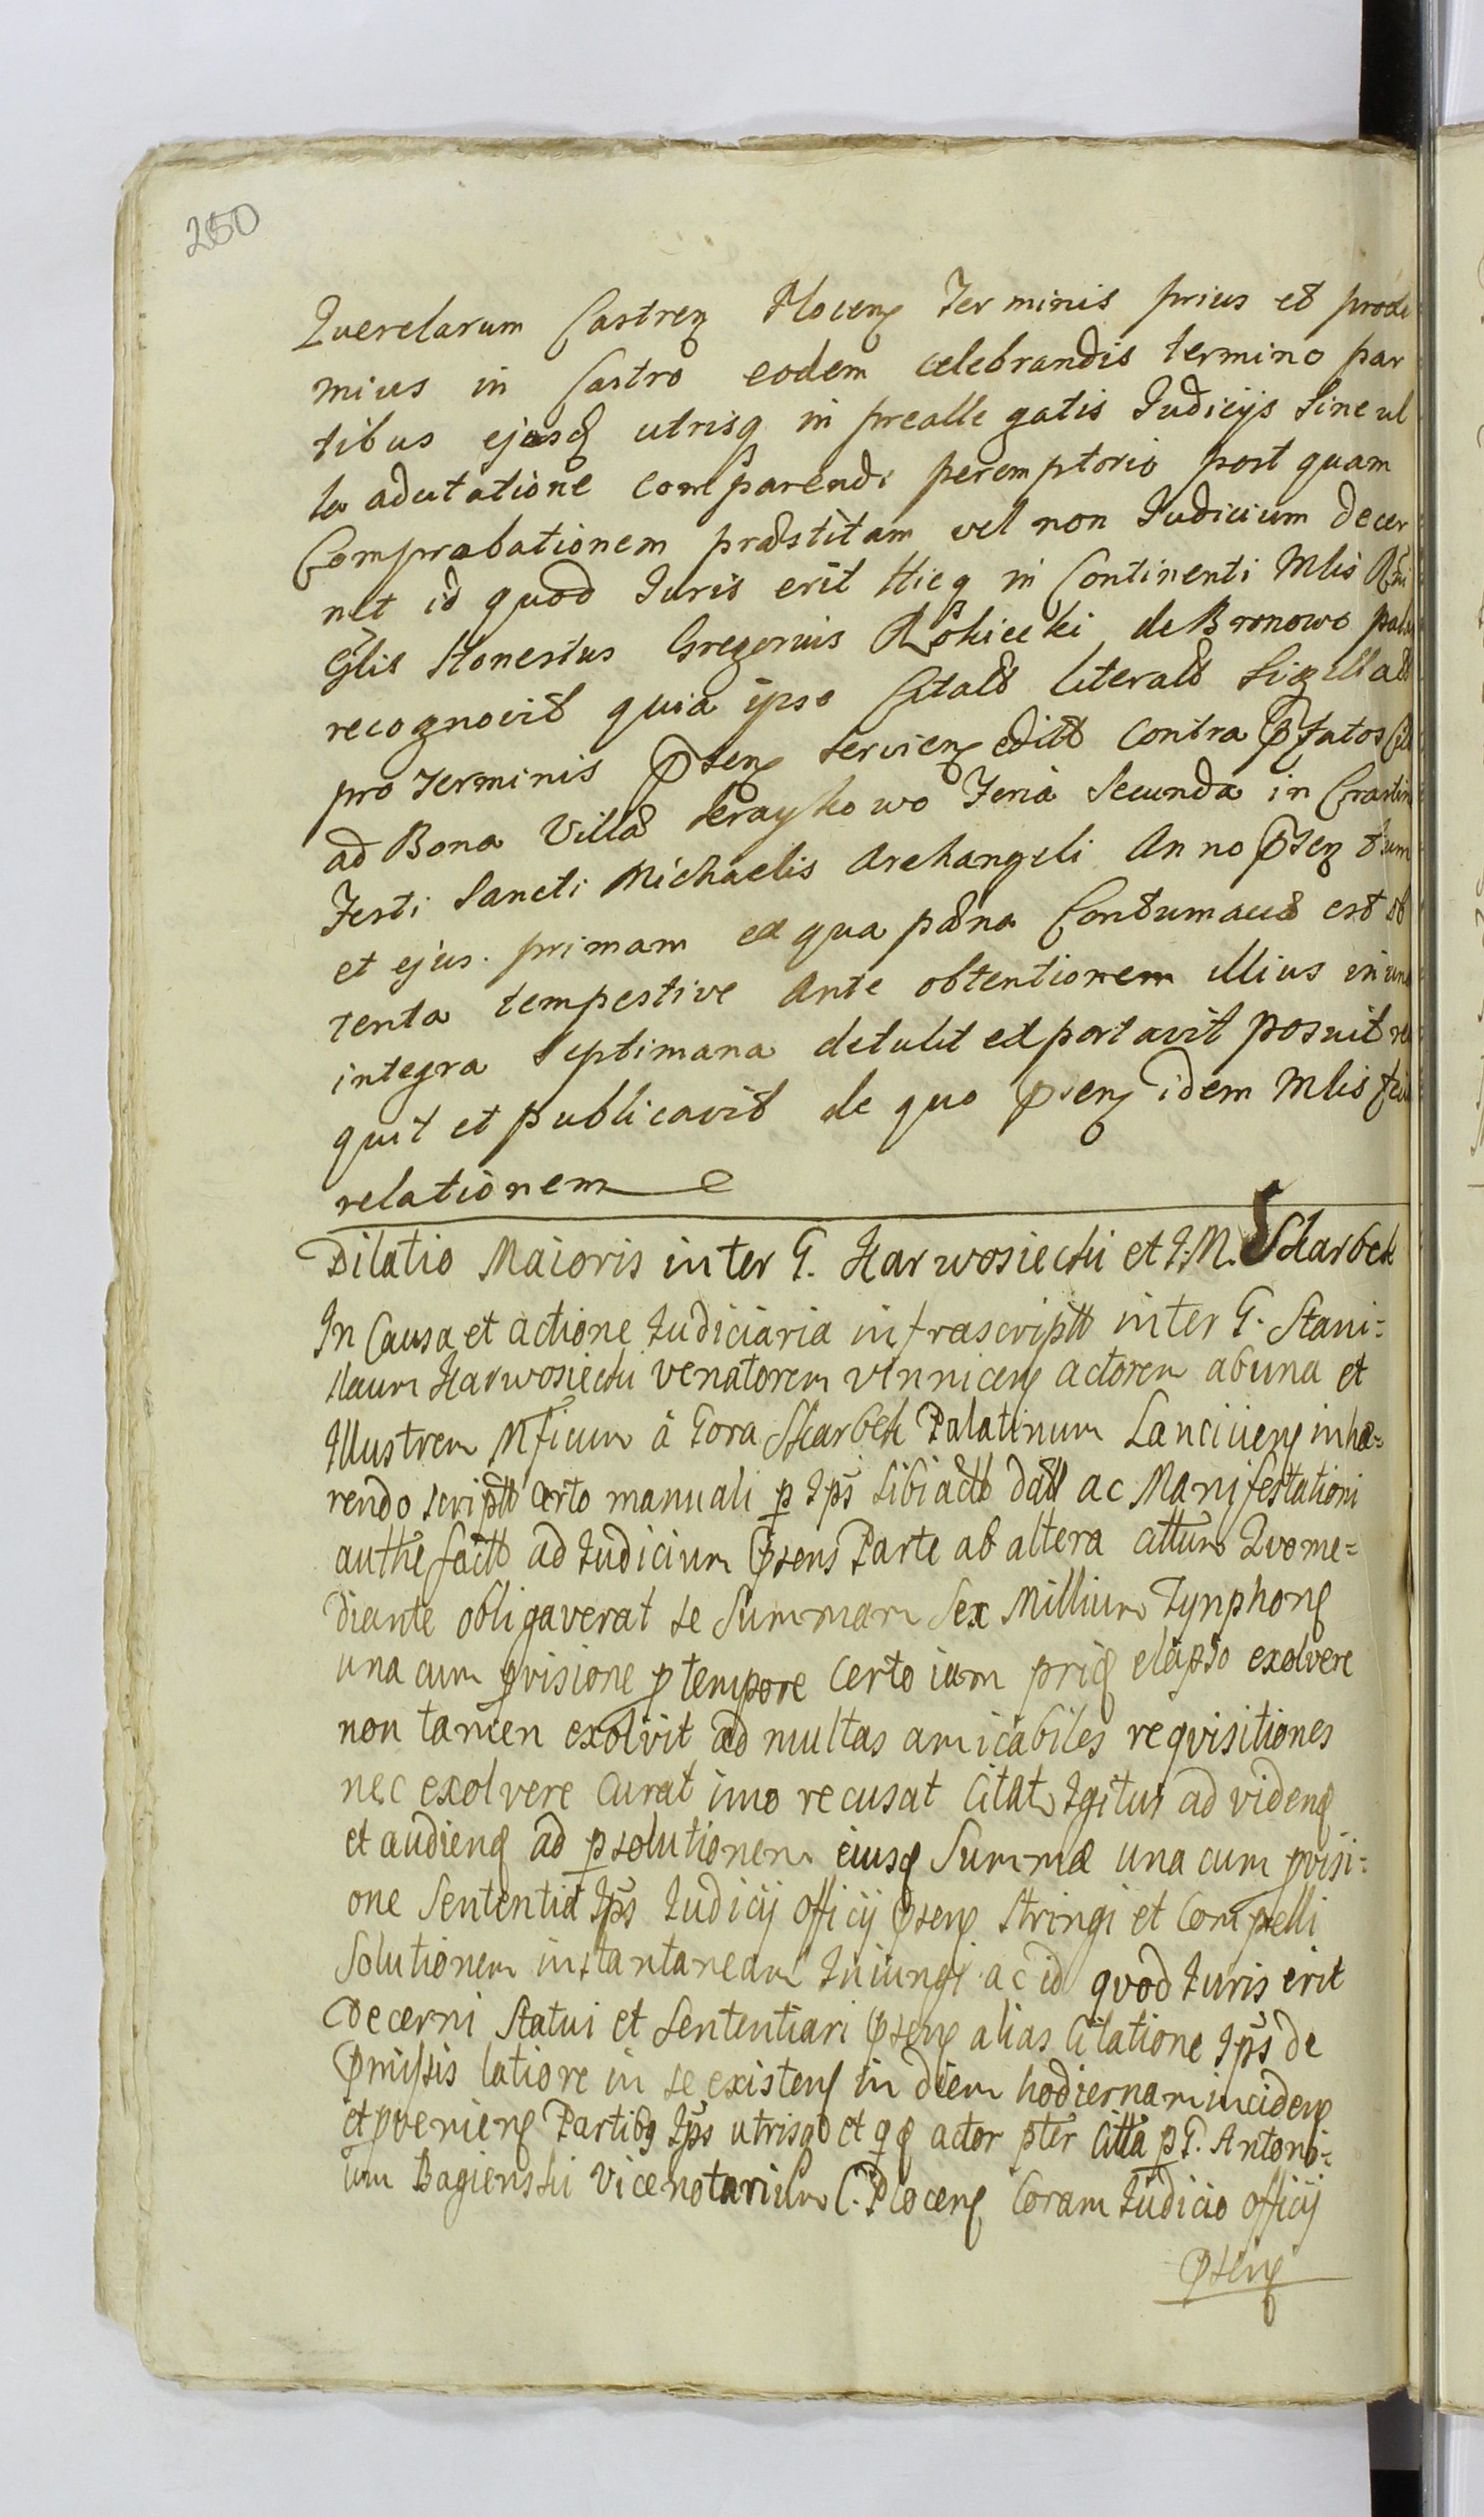 250
Querelarum Castren Plocen Terminis prius et proxi
mius in Castro eodem celebrandis termino par
tibus ejusq utrisq in preallegatis Judicijs Sine ul
la adcitatione comparendi peremptorio post quam
Comprobationem præstitam vel non Judicium decer
net id quod Juris erit Hicq in Continenti Mlis Rni
Glis Honestus Gregorius Rokicki de Bronowo
recognovit quia ipse literal Sigillatt
pro Terminis Psen Servien editt Contra Pfatos
ad Bona Villæ Seraykowo Feria Secunda in Crastin
Festi Sancti Michaelis Archangeli Anno Psen tum
et ejus primam ex qua pæna Contumaciæ est ob
tenta tempestive Ante obtentionem illius in una
integra Septimana detulit exportavit posuit re
quit et publicavit de quo Psen idem Mlis
relationem
Dilatio Maioris inter G. Karwosiecki et J.M. Skarbek
In Causa et actione Judiciaria infrascriptt inter G. Stani=
slaum Karwosiecki venatorem vinnicen actorem ab una et
Illustrem Mficum à Gora Skarbek Palatinum Lancicien inhæ=
rendo scriptt certo manuali p Ips sibi actt datt ac Manifestationi
authe factt ad Judicium Psens Parte ab altera cittum Quome=
diante obligaverat se Summam Sex Millium Tynphon
una cum pvisione p tempore certo iam priq elapso exolvere
non tamen exolvit ad multas amicabiles reqvisitiones
nec exolvere curat imo recusat Citat Igitur ad viden
et audien ad psolutionem eiusq Summæ una cum pvisi=
one Sententia Ips Judicij officij Psen stringi et compelli
Solutionem instantaneam Iniungi ac id qvod Juris erit
Decerni Statui et Sententiari Psen alias Citatione Ips de
Pmissis latiore in se existen in diem hodiernam inciden
et pvenien Partibq Ips utrisq et qq actor pter Citta p G. Antoni=
um Bagienski Vicenotarium C. Plocen Coram Judicio officij
Psen